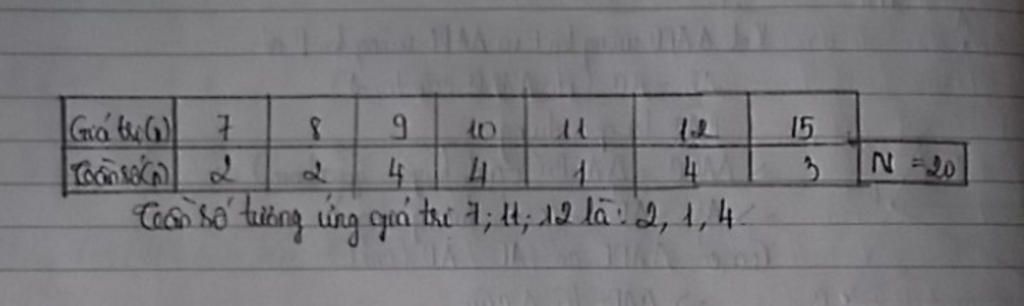 Giá trị(x) 7 8 9 10 11 12 15
Tần số(n) 2 2 4 4 1 4 3 N = 20
Tần số tương ứng giá trị 7; 11; 12 là: 2, 1, 4.